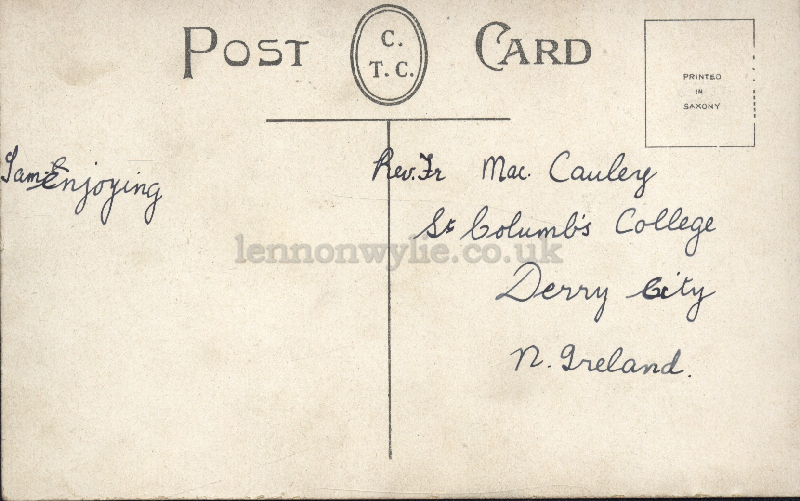 POST CARD
C.
T. C.
PRINTED
IN
SAXONY
I am Enjoying
Rev. Fr Mac. Cauley
St Columb's College
Derry City
N. Ireland.
lennonwylie.co.uk